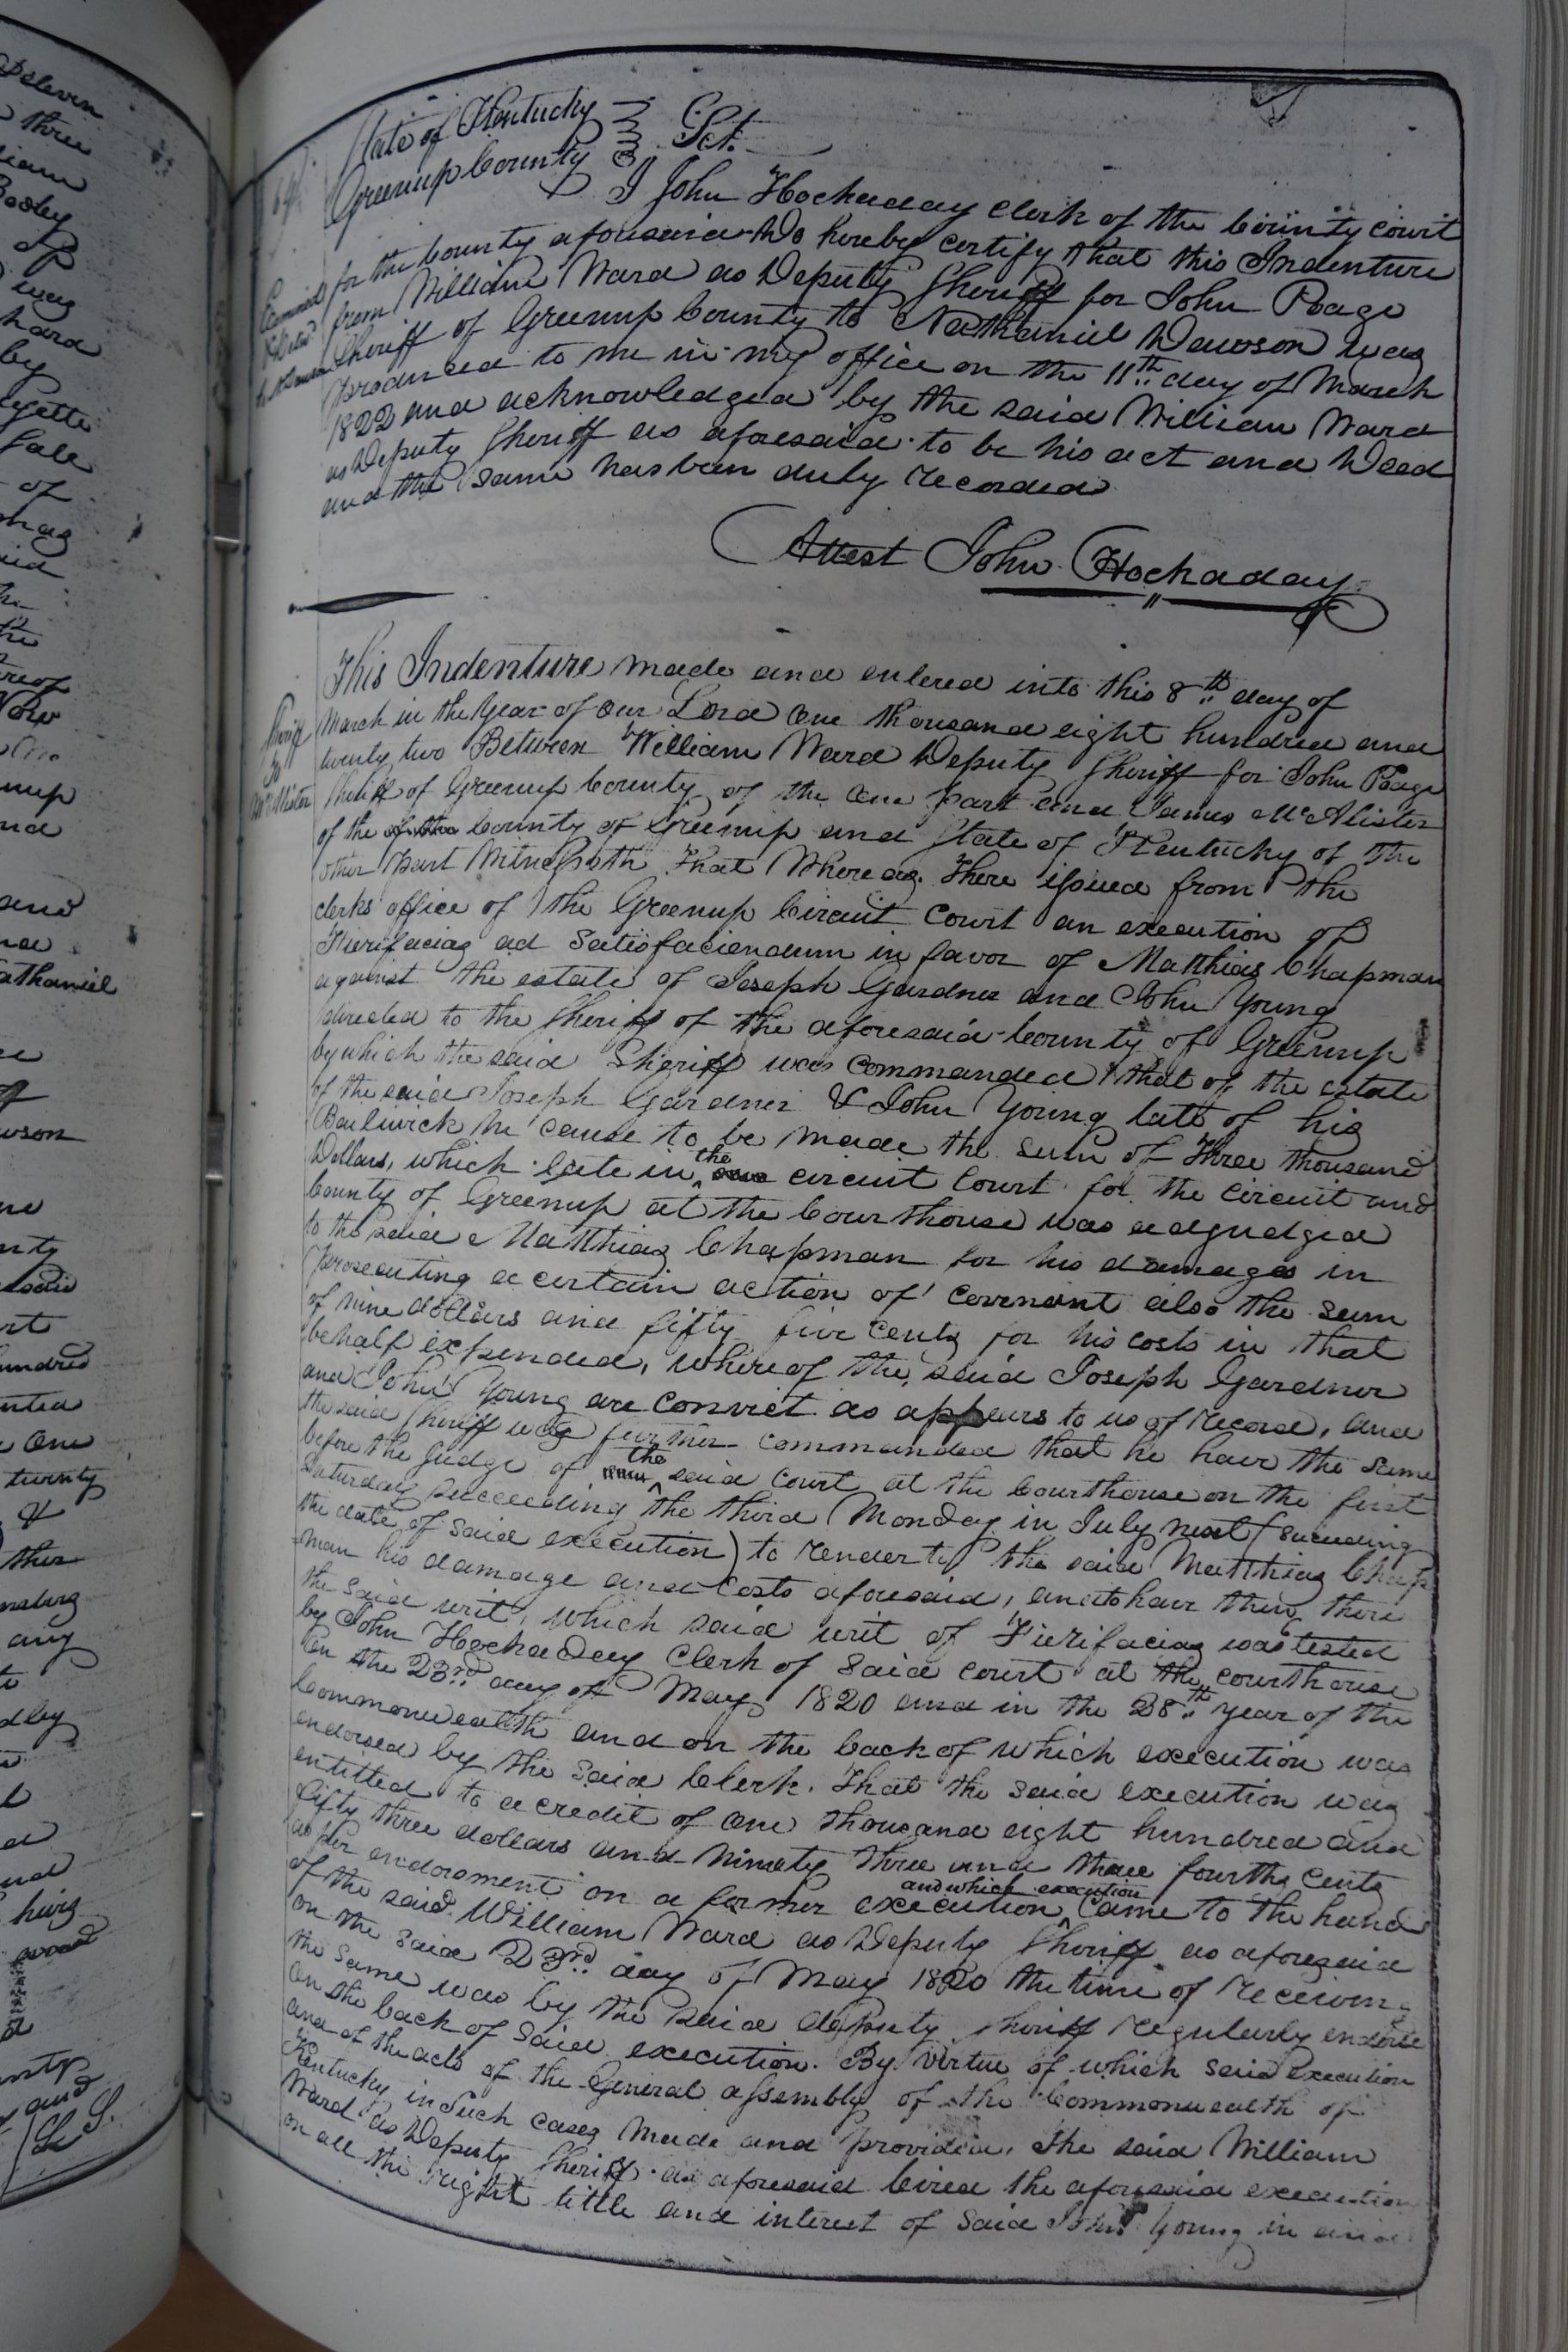 State of Kentucky
Greenup County Sct.
I John Hockaday Clerk of the County Court
for the County aforesaid Do hereby certify that this Indenture
from William Ward as Deputy Sheriff for John Poage
Sheriff of Greenup County to Nathaniel Dawson was
produced to me in my office on the 11th day of March
1822 and acknowledged by the said William Ward
as Deputy Sheriff as aforesaid to be his act and Deed
and the same has been duly recorded
Attest John Hockaday
This Indenture made and entered into this 8th day of
March in the Year of our Lord One thousand eight hundred and
twenty two Between William Ward Deputy Sheriff for John Poage
Sheriff of Greenup County of the One part and James McAlister
of the of the County of Greenup and State of Kentucky of the
other part Witnesseth That Whereas There issued from the
clerks office of the Greenup Circuit Court an execution of
Fierifacias ad satisfaciendum in favor of Matthias Chapman
against the estate of Joseph Gardner and John Young
directed to the Sheriff of the aforesaid County of Greenup
by which the said Sheriff was commanded that of the estate
of the said Joseph Gardner & John Young late of his
Bailiwick he cause to be made the sum of Three thousand
Dollars, which late in the circuit Court for the circuit and
County of Greenup at the Courthouse was adjudged
to the said Matthias Chapman for his damages in
prosecuting a certain action of covenant also the sum
of nine dollars and fifty five cents for his costs in that
behalf expended, whereof the said Joseph Gardner
and John Young are convict as appears to us of record, and
the said Sheriff was further commanded that he have the same
before the Judge of the said Court at the Courthouse on the first
Saturday succeeding the third Monday in July next (succeeding
the date of said execution) to render to the said Matthias Chap
=man his damage and costs aforesaid, and to have then there
the said writ, which said writ of Fierifacias was tested
by John Hockaday Clerk of said court at the courthouse
On the 23rd day of May 1820 and in the 28th year of the
Commonwealth and on the back of which execution was
endorsed by the said Clerk. That the said execution was
entitled to a credit of one thousand eight hundred and
fifty three dollars and ninety three and three fourths cents
as per endorsment on a former execution and which execution came to the hand
of the said William Ward as Deputy Sheriff as aforesaid
on the said 23rd day of May 1820 the time of receiving
the same was by the said deputy Sheriff regularly endorse
on the back of said execution. By virtue of which said execution
and of the acts of the General assembly of the Commonwealth of
Kentucky in such cases made and provided, the said William
Ward as Deputy Sheriff as aforesaid levied the aforesaid execution
on all the right title and interest of said John Young in and
Sheriff
To
McAlister